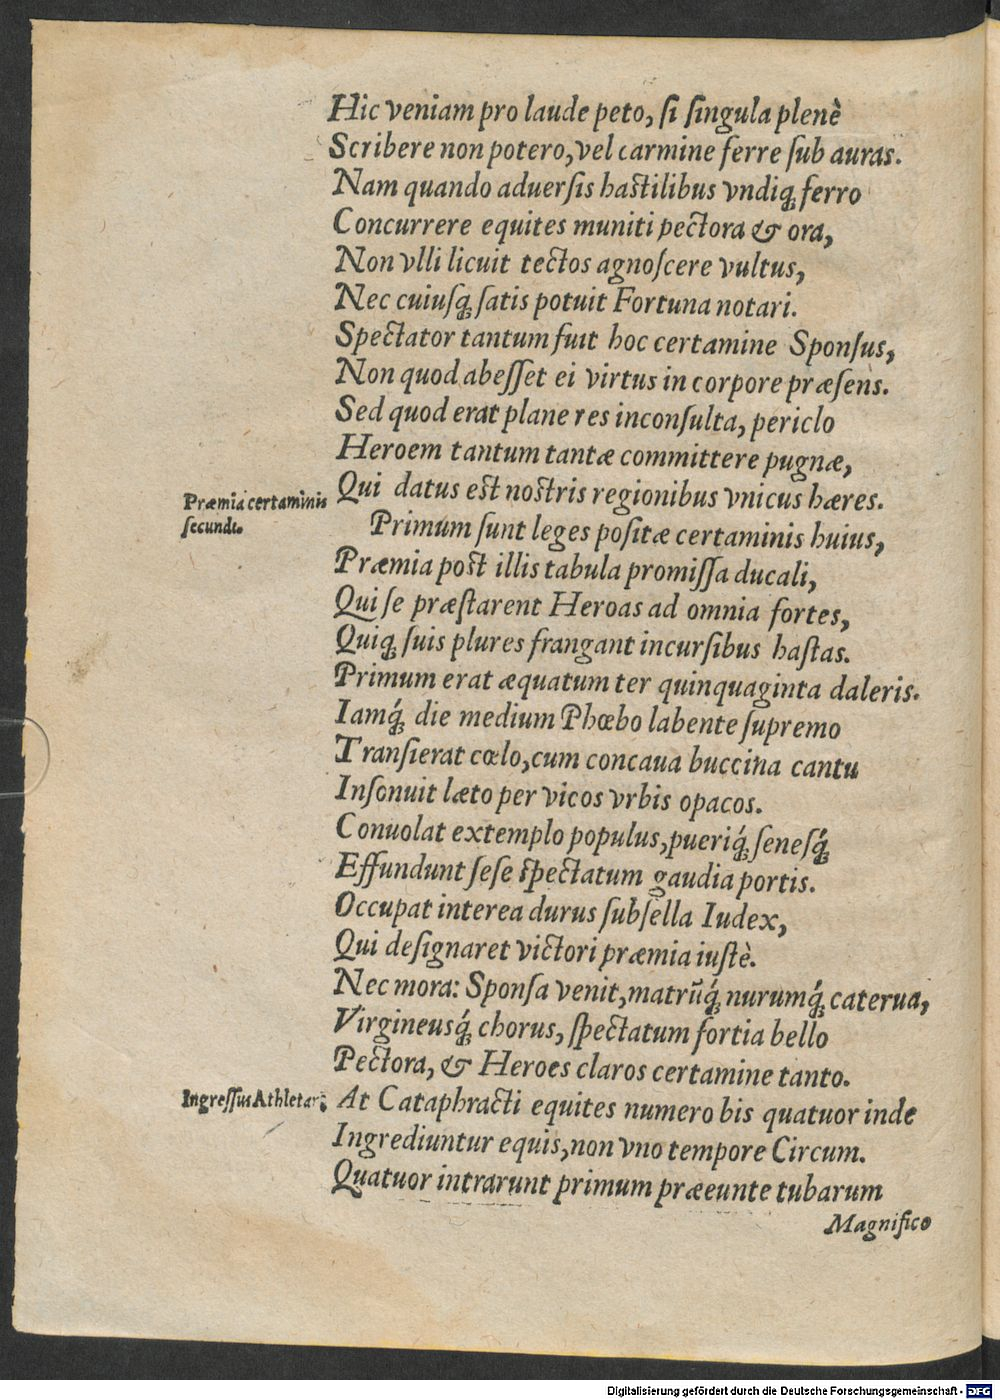 Hic veniam pro laude peto, ſi ſingula plenè
Scribere non potero, vel carmine ferre ſub auras.
Nam quando aduerſis haſtilibus vndiq́; ferro
Concurrere equites muniti pectora & ora,
Non vlli licuit tectos agnoſcere vultus,
Nec cuiuſq́; ſatis potuit Fortuna notari.
Spectator tantum fuit hoc certamine Sponſus,
Non quod abeſſet ei virtus in corpore præſens.
Sed quod erat plane res inconſulta, periclo
Heroem tantum tantæ committere pugnæ,
Qui datus eſt noſtris regionibus vnicus hæres.
Præmia certaminis
ſecundi.
Primum ſunt leges poſitæ certaminis huius,
Præmia poſt illis tabula promiſſa ducali,
Qui ſe præſtarent Heroas ad omnia fortes,
Quiq; ſuis plures frangant incurſibus haſtas.
Primum erat æquatum ter quinquaginta daleris.
Iamq́; die medium Phœbo labente ſupremo
Tranſierat cœlo, cum concaua buccina cantu
Inſonuit læto per vicos vrbis opacos.
Conuolat extemplo populus, pueriq́; ſeneſq́;
Effundunt ſeſe ſpectatum gaudia portis.
Occupat interea durus ſubſella Iudex,
Qui deſignaret victori præmia iuſtè.
Nec mora: Sponſa venit, matrūq́; nurumq́; caterua,
Virgineusq́; chorus, ſpectatum fortia bello
Pectora, & Heroes claros certamine tanto.
Ingreſſus Athletar;
At Cataphracti equites numero bis quatuor inde
Ingrediuntur equis, non vno tempore Circum.
Quatuor intrarunt primum præeunte tubarum
Magnifico
Digitalisierung gefördert durch die Deutsche Forschungsgemeinschaft - DFG